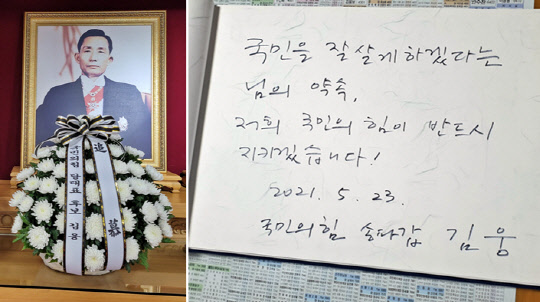 追慕
국민의힘 당대표 후보 김웅
국민을 잘 살게하겠다는
님의 약속,
저희 국민의 힘이 반드시
지키겠습니다!
2021. 5. 23.
국민의힘 송파갑 김웅